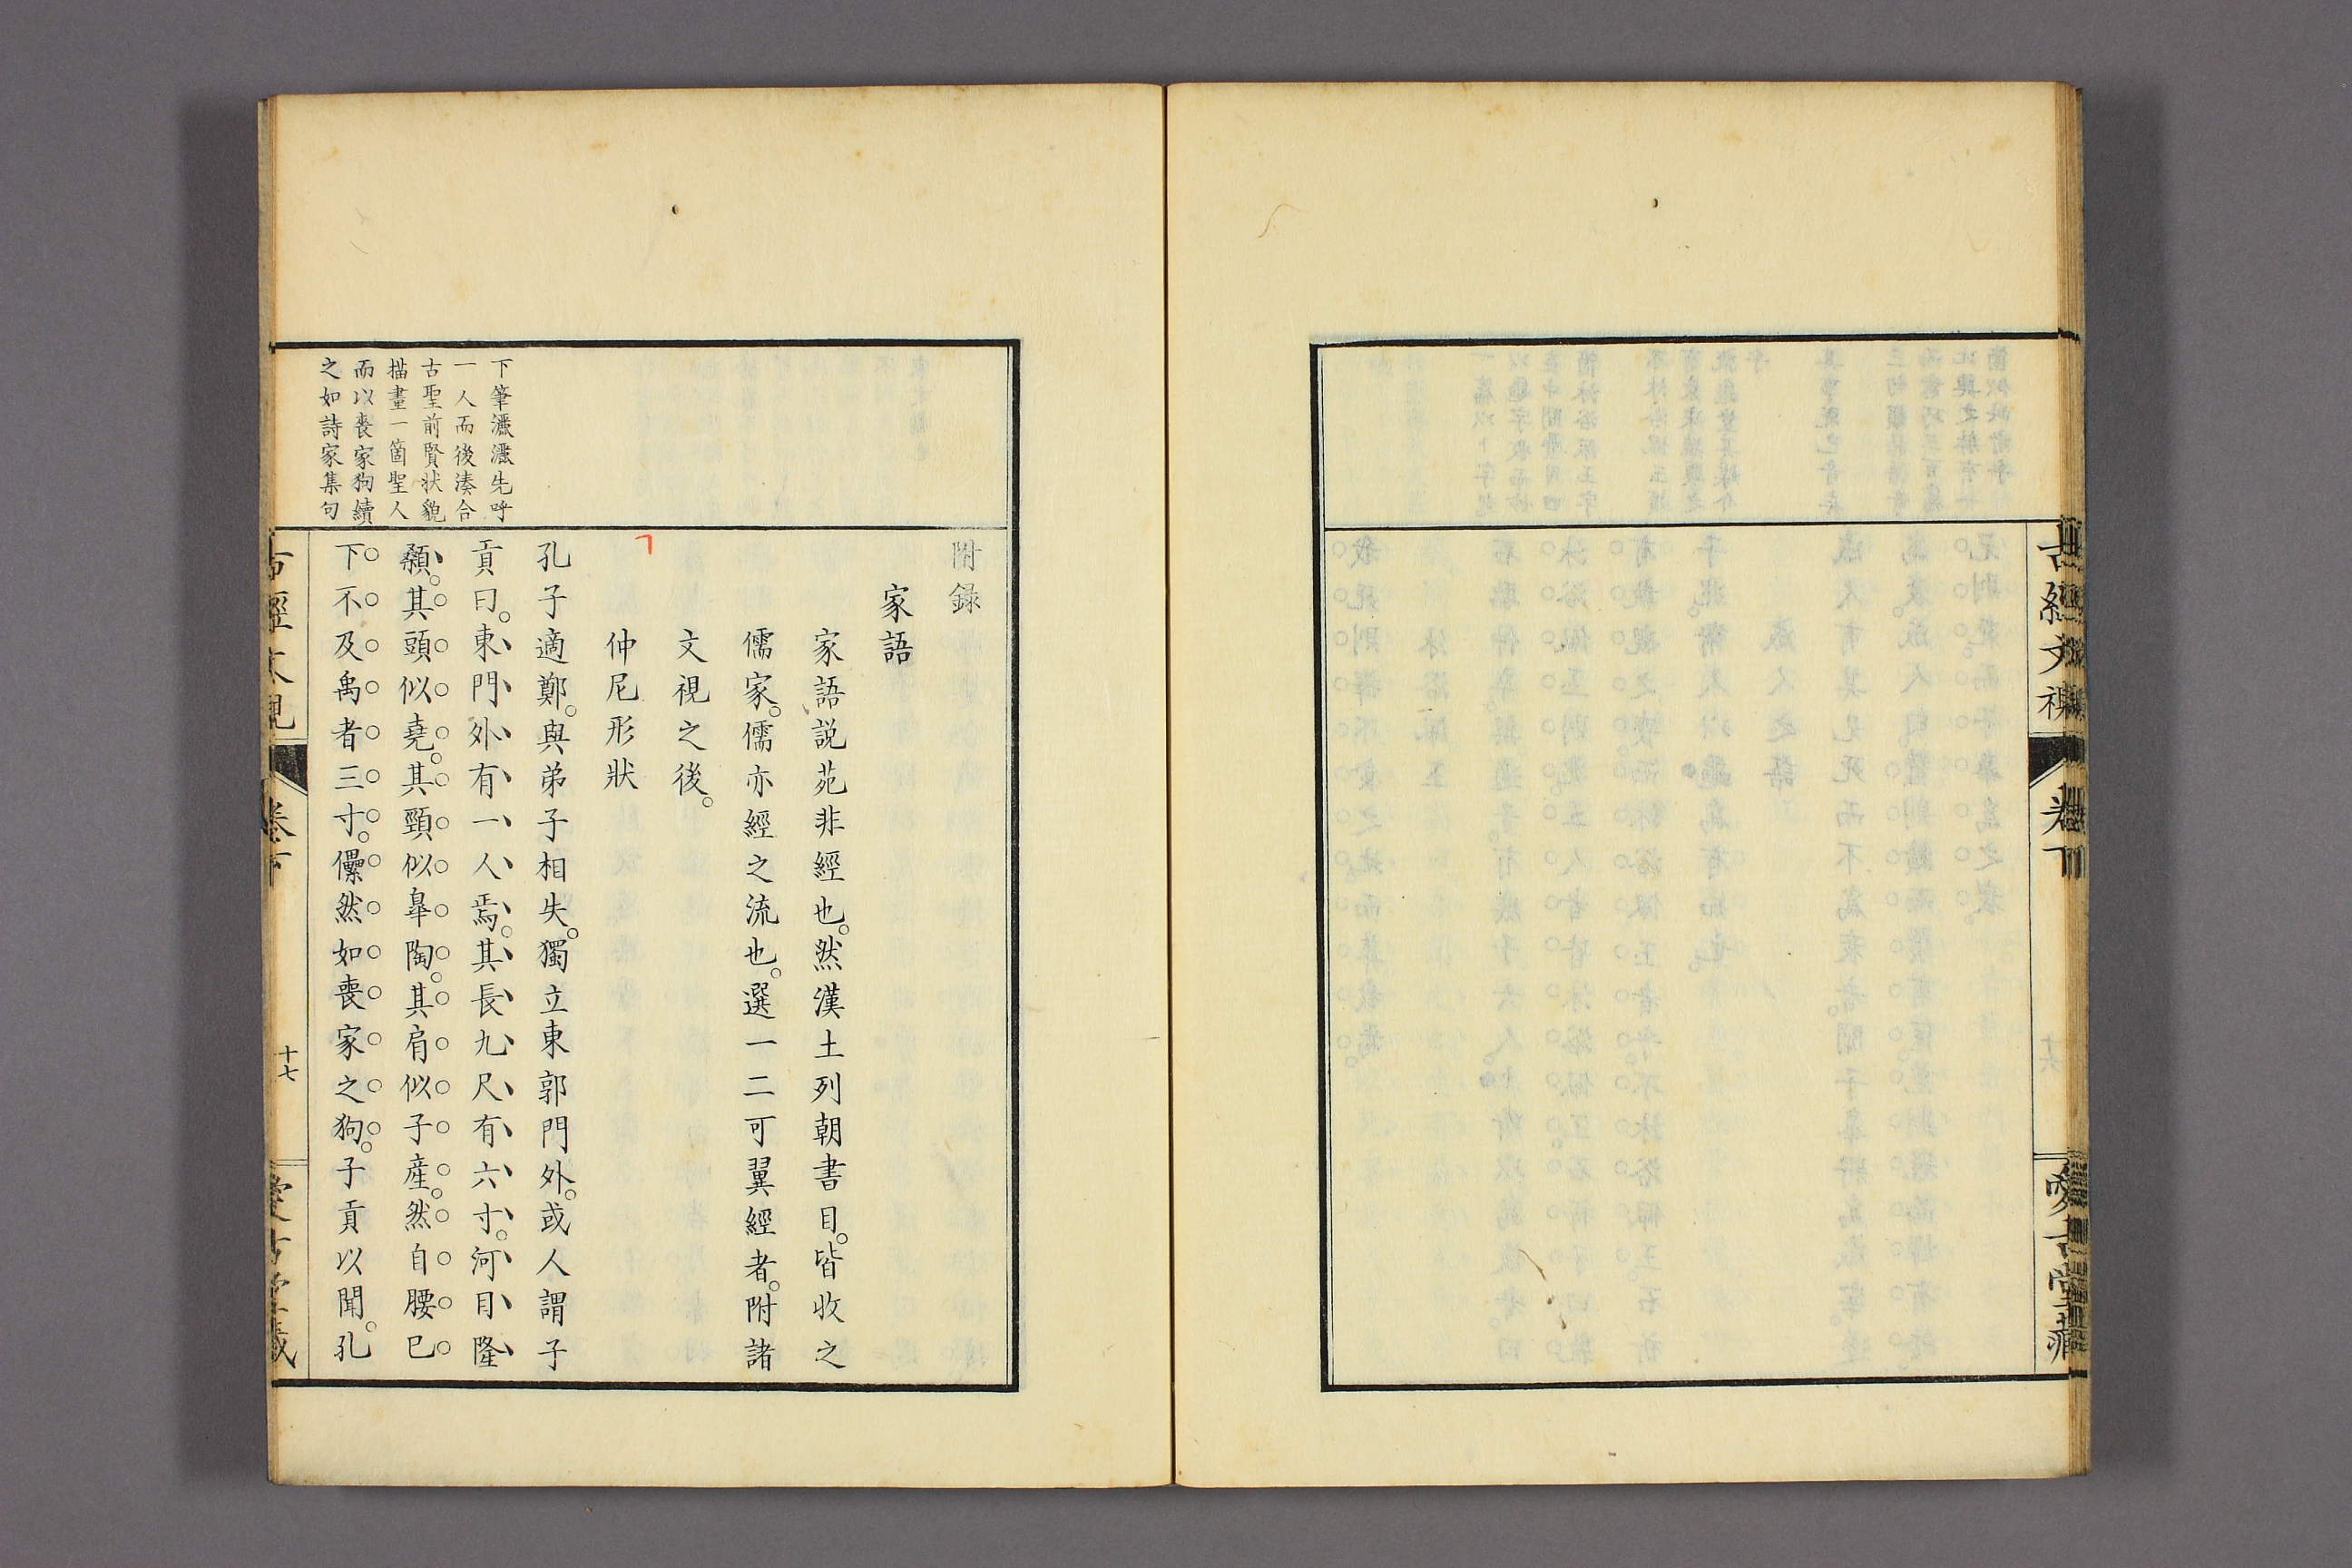 古經文視
卷下
愛古堂藏
附錄
家語
家語説苑非經也。然漢土列朝書目。皆收之
儒家。儒亦經之流也。選一二可翼經者。附諸
文視之後。
仲尼形狀
孔子適鄭。與弟子相失。獨立東郭門外。或人謂子
貢曰。東門外有一人焉。其長九尺有六寸。河目隆
顙。其頭似堯。其頸似皐陶。其肩似子産。然自腰已
下不及禹者三寸。儽然如喪家之狗。子貢以聞。孔
下筆灑灑先呼
一人而後湊合
古聖前賢状貌
描畫一箇聖人
而以喪家狗續
之如詩家集句
古經文視
卷下
十七
愛古堂藏